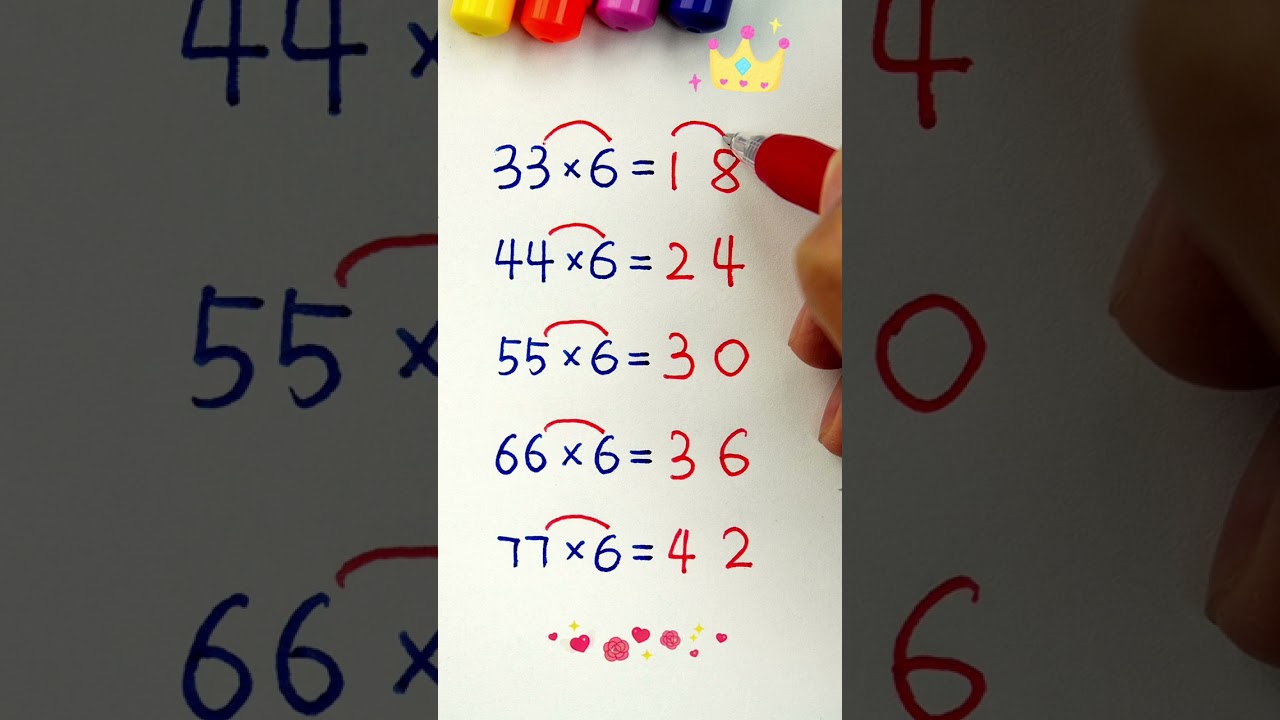 33×6=1 8
44×6=2 4
55×6=3 0
66×6=3 6
77×6=4 2